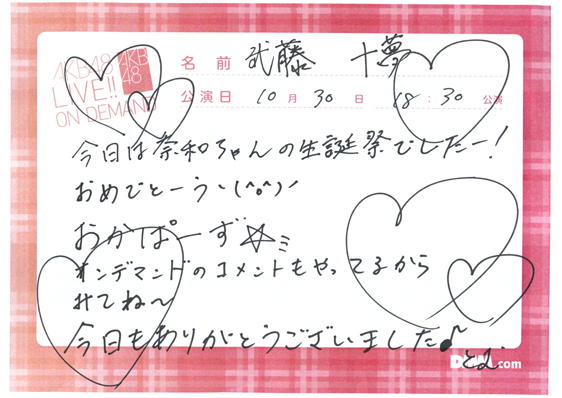 AKB48
LIVE!!
ON DEMAND
AKB
48
名前 武藤 十夢
公演日 10月30日 18:30公演
今日は奈和ちゃんの生誕祭でしたー!
おめでとーうヽ(^o^)ノ
おかぱーず☆彡
オンデマンドのコメントもやってるから
みてね〜
今日もありがとうございました♪
とむ
.com